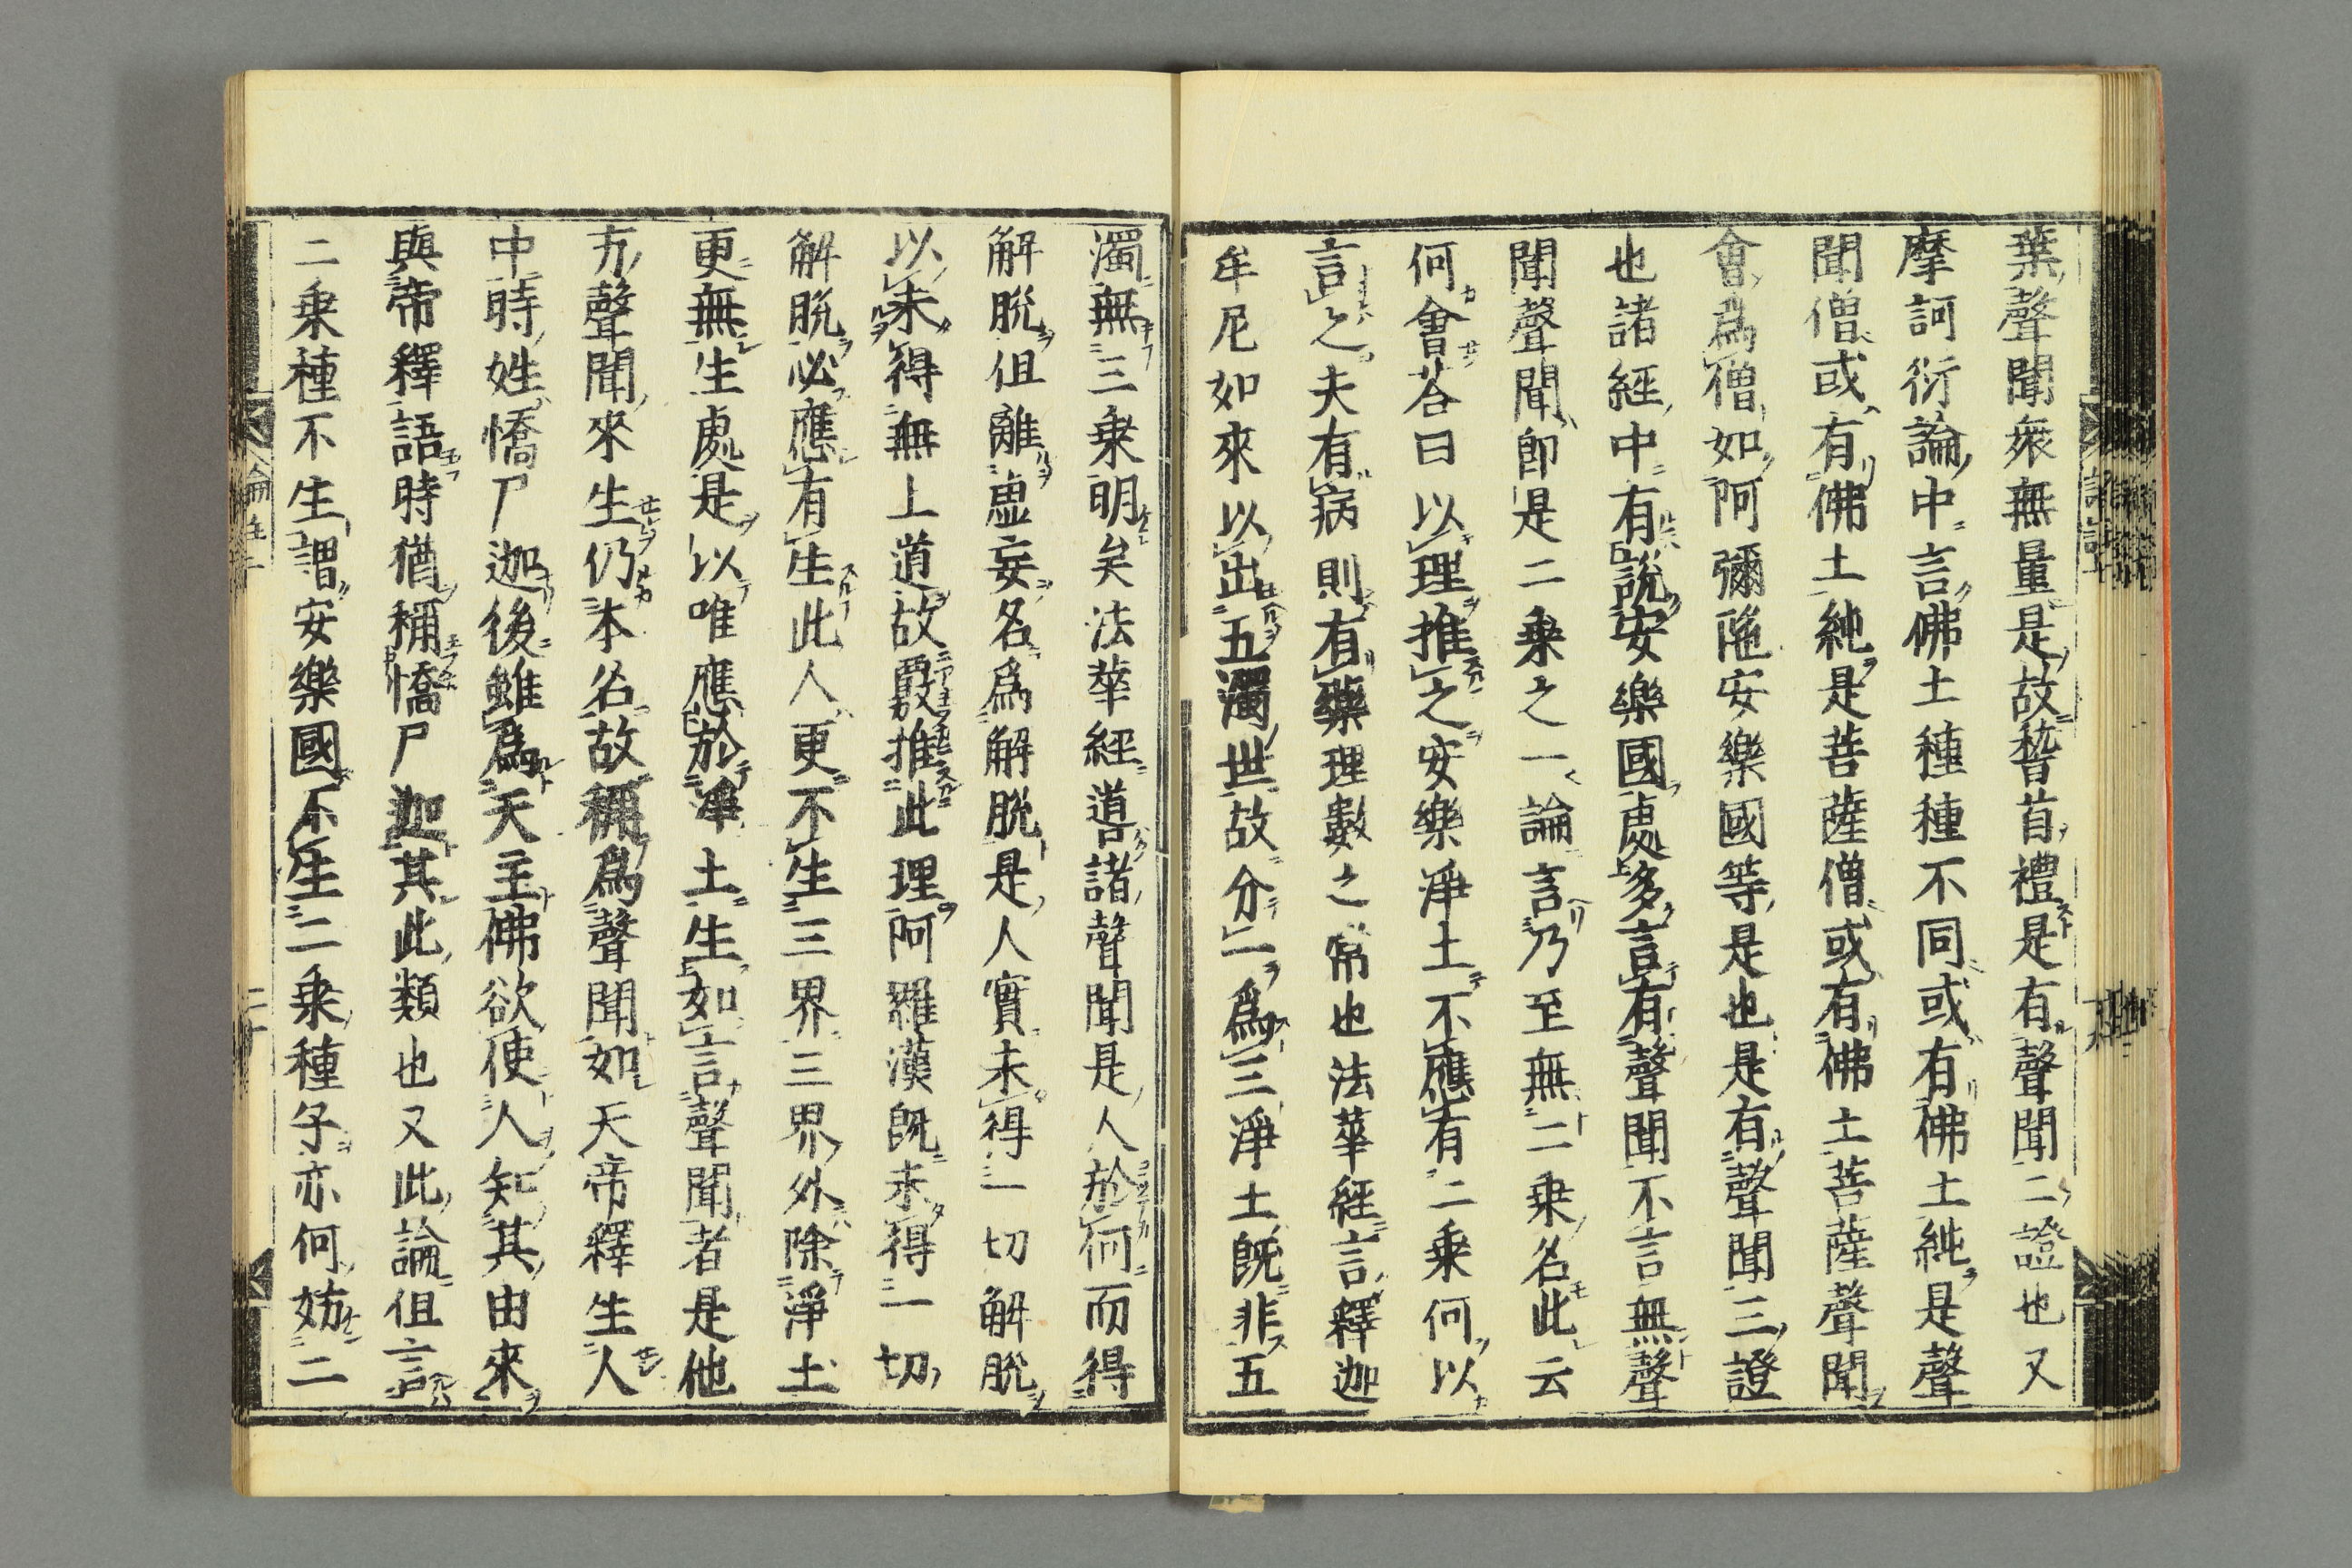 葉聲聞衆無量是故𥡴首禮是有聲聞二證也又
摩訶衍論中言佛土種種不同或有佛土純是聲
聞僧或有佛土純是菩薩僧或有佛土菩薩聲聞
會爲僧如阿彌陁安樂國等是也是有聲聞三證
也諸經中有說安樂國處多言有聲聞不言無聲
聞聲聞即是二乗之一論言乃至無二乗名此云
何會荅曰以理推之安樂淨土不應有二乗何以
言之夫有病則有藥理數之常也法華經言釋迦
牟尼如來以出五濁世故分一爲三淨土旣非五
濁無三乗明矣法華經噵諸聲聞是人於何而得
解脫但離虛妄名爲解脫是人實未得一切解脫
以未得無上道故覈推此理阿羅漢旣未得一切
解脫必應有生此人更不生三界三界外除淨土
更無生處是以唯應於淨土生如言聲聞者是他
方聲聞來生仍本名故稱爲聲聞如天帝釋生人
中時姓憍尸迦後雖爲天主佛欲使人知其由來
與帝釋語時猶稱憍尸迦其此類也又此論但言
二乗種不生謂安樂國不生二乗種子亦何妨二